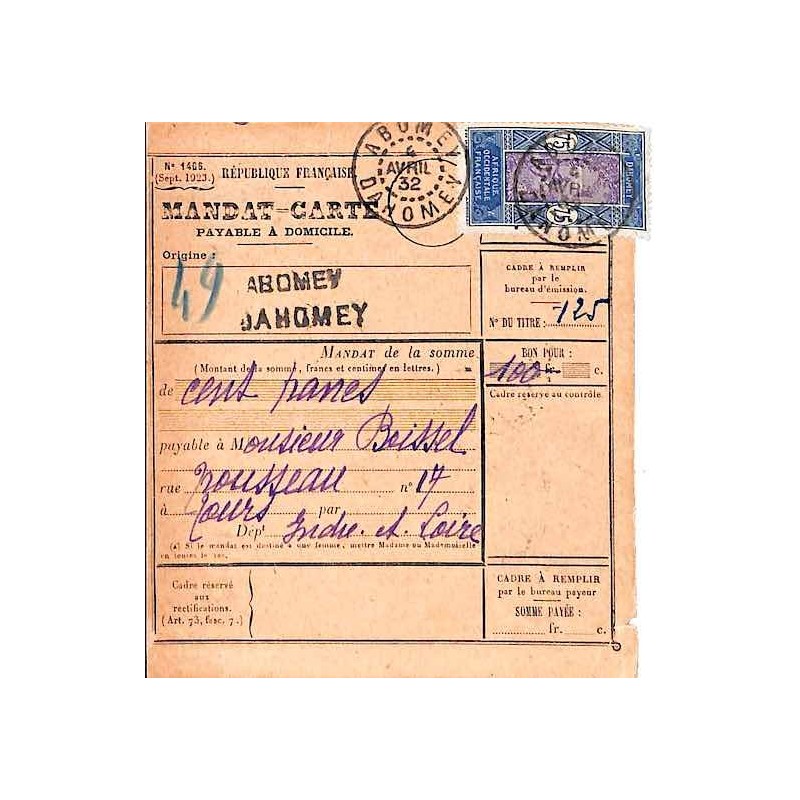 ABOMEY
4
AVRIL
32
DAHOMEY
AFRIQUE
OCCIDENTALE
FRANÇAISE
75
75
DAHOMEY
N° 1406.
(Sept. 1923.)
RÉPUBLIQUE FRANÇAISE.
MANDAT-CARTE
PAYABLE À DOMICILE.
Origine :
49
ABOMEY
DAHOMEY
CADRE À REMPLIR
par le
bureau d'émission.
N° DU TITRE : 125
MANDAT de la somme
(Montant de la somme, francs et centimes en lettres.)
de cent francs
BON POUR :
100 fr. c.
Cadre réservé au contrôle.
payable à Monsieur Boissel
rue Rousseau n° 17
à Tours par
Dépt Indre. et. Loire
(A) Si le mandat est destiné à une femme, mettre Madame ou Mademoiselle
en toutes let.
Cadre réservé
aux
rectifications.
(Art. 73, fasc. 7.)
CADRE À REMPLIR
par le bureau payeur
SOMME PAYÉE :
fr. c.